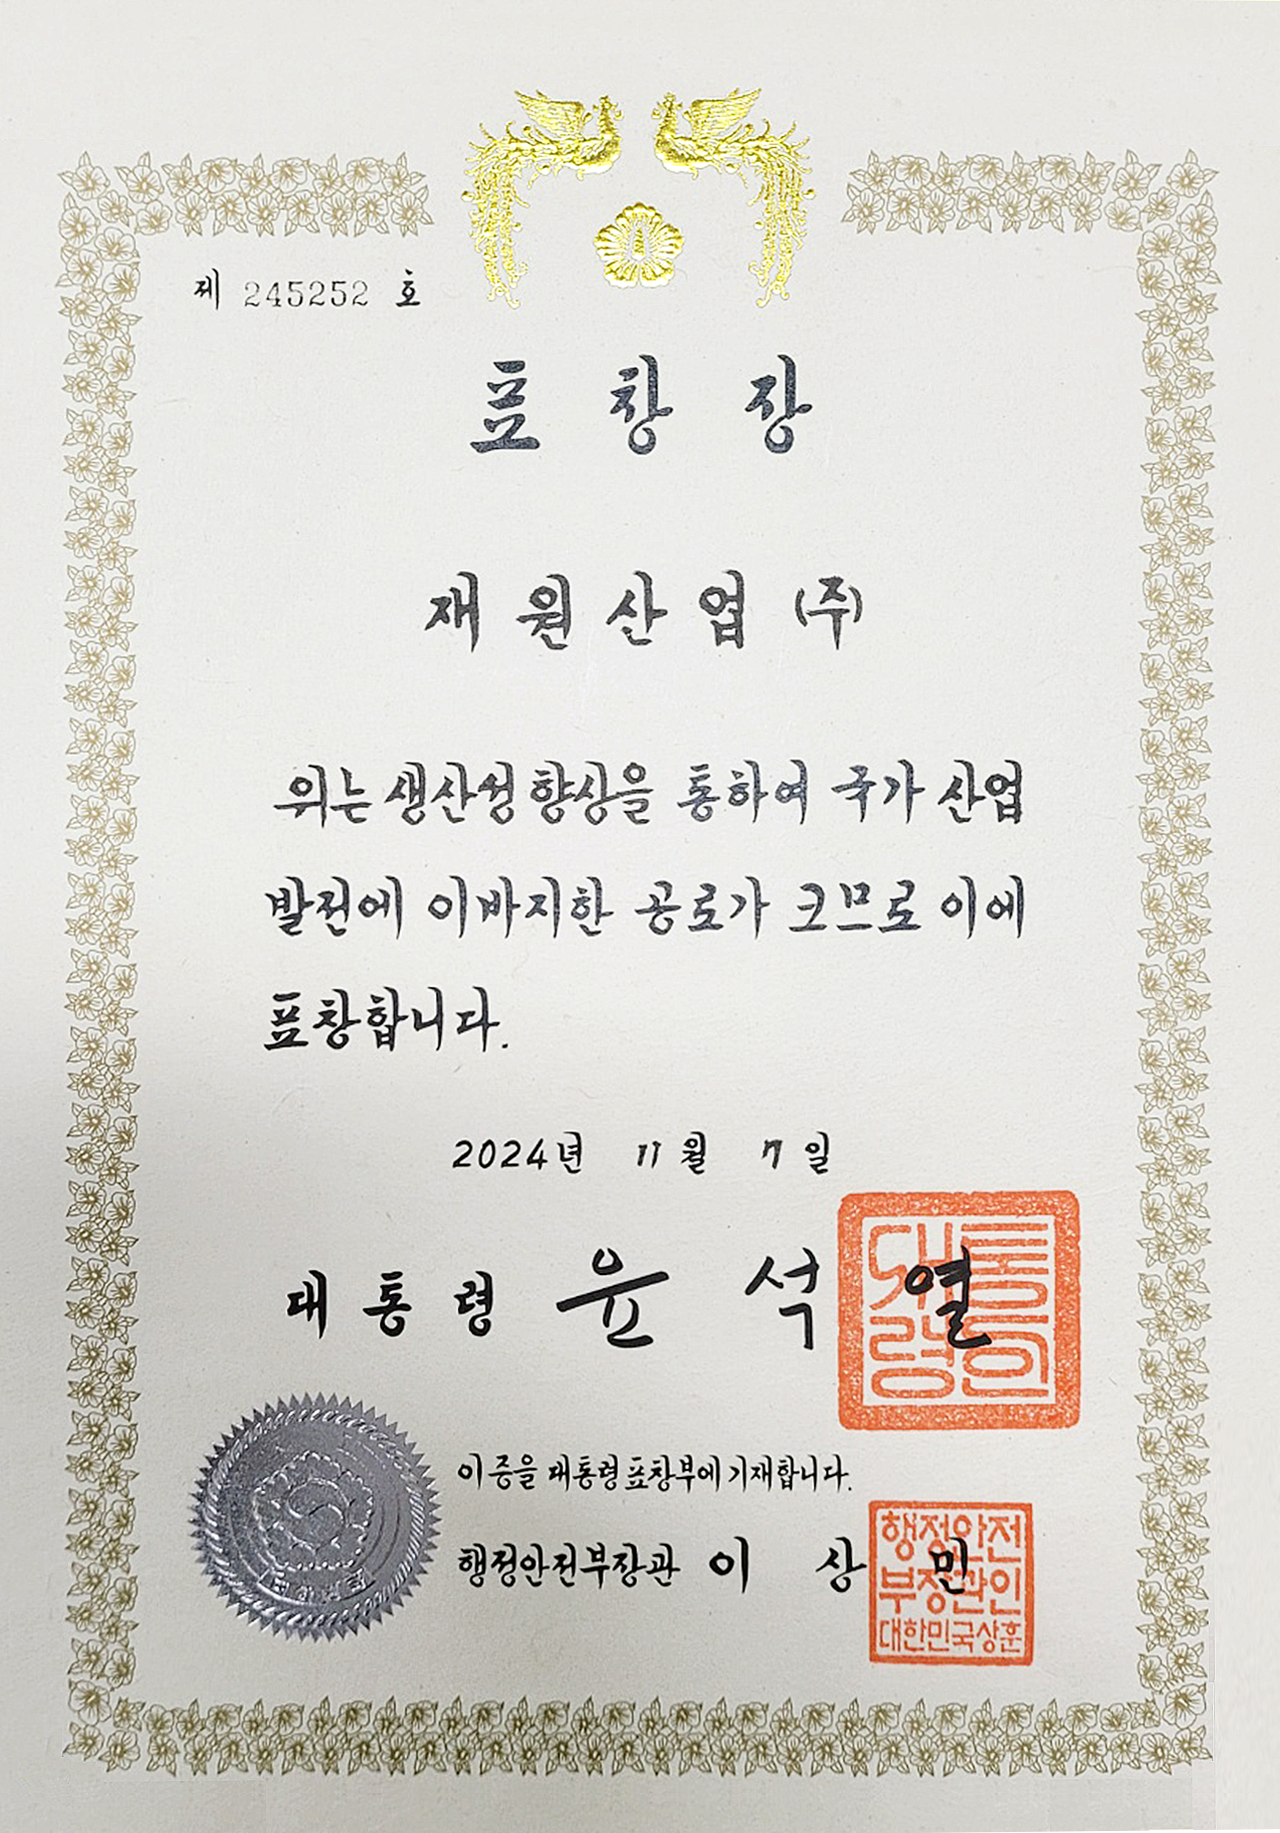 제 245252 호
표창장
재원산업(주)
위는 생산성 향상을 통하여 국가 산업
발전에 이바지한 공로가 크므로 이에
표창합니다.
2024년 11월 7일
대통령 윤석열
대통령인
이 증을 대통령표창부에 기재합니다.
행정안전부장관 이상민
행정안전
부장관인
대한민국상훈